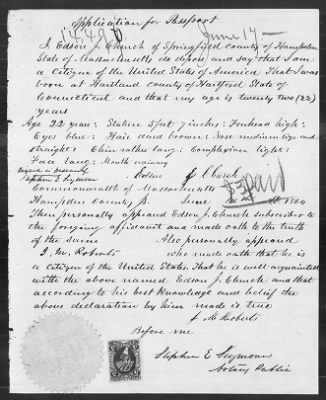 Application for Passport
14490 June 14
I. Edson J. Church of Springfield county of Hampden
State of Massachusetts do depose and say that I am
a citizen of the United States of America That I was
born at Hartland county of Hartford State of
Connecticut and that my age is twenty two (22)
years
Age 22 years: Stature 5 feet 7 inches: Forehead high:
Eyes blue: Hair dark brown: Nose medium size and
straight: Chin rather long: Complexion light:
Face long: Mouth
Signed in presence of
Stephen E Seymour Edson J Church
Commonwealth of Massachusetts
Hampden County, June
Then personally appeared Edson J. Church subscriber to
the foregoing affidavit and made oath to the truth
of the same Also personally appeared
J. M. Roberts who made oath that he is
a citizen of the United States. That he is well acquainted
with the above named Edson J. Church and that
according to his best knowledge and belief the
above declaration by him made is true
J M Roberts
Before me
Stephen E Seymour
Notary Public